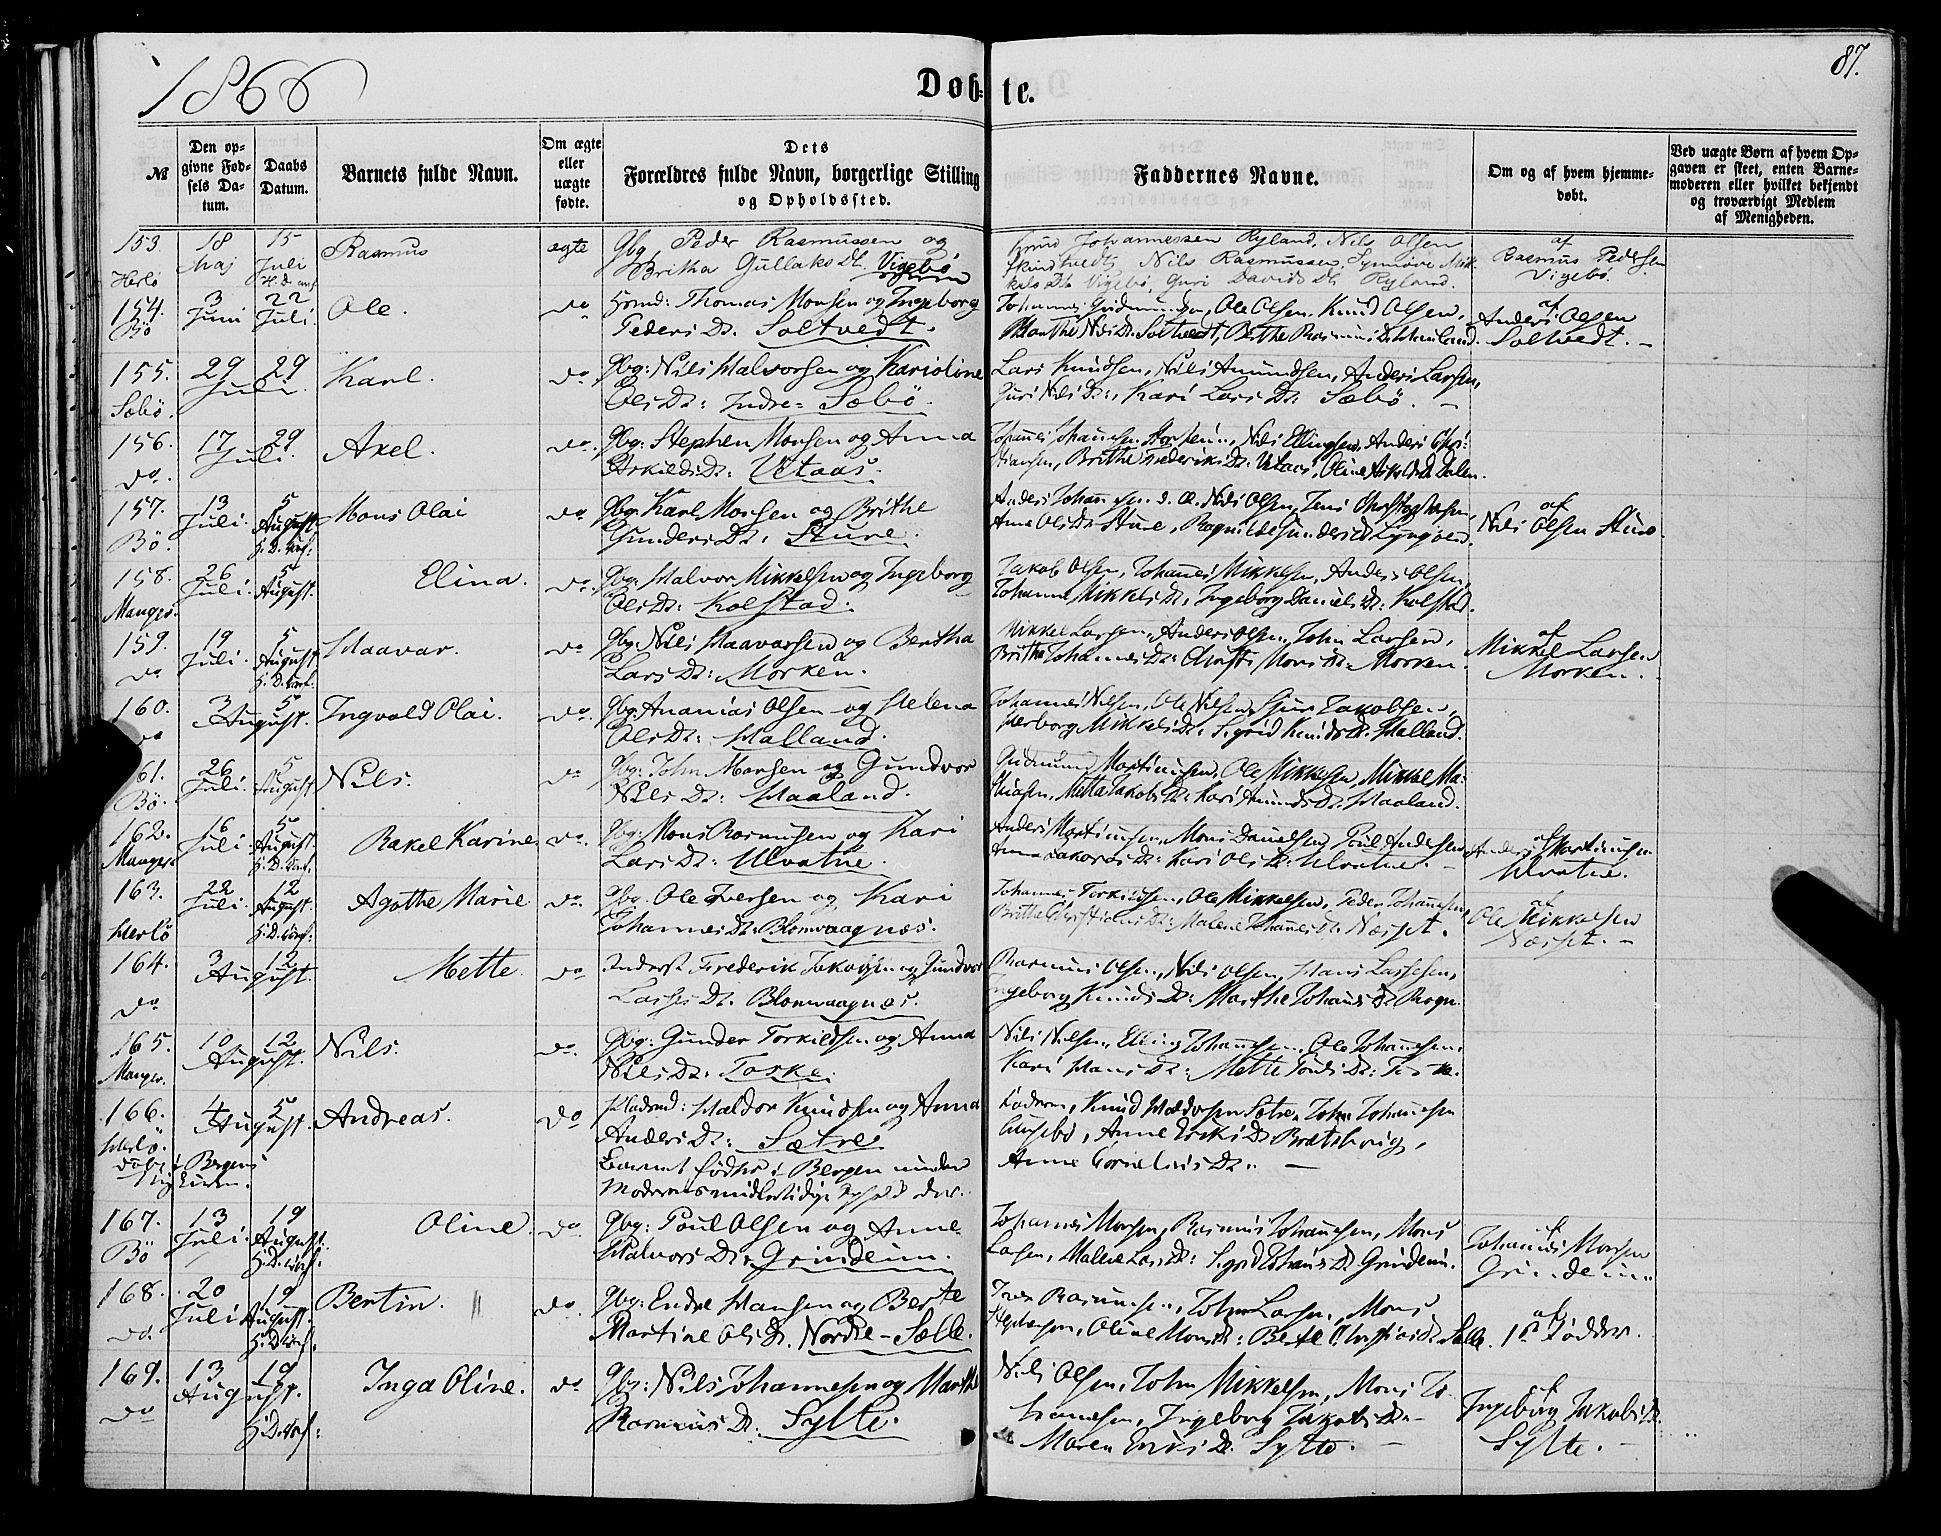 1866
Døbte.
87.
№
Den opgivne Fødsels Datum.
Daabs Datum.
Barnets fulde Navn.
Om ægte eller uægte fødte.
Dets Forældres fulde Navn, borgerlige Stilling og Opholdssted.
Faddernes Navne.
Om og af hvem hjemmedøbt.
Ved uægte Børn af hvem Opgaven er skeet, enten Barnemoderen eller hvilket bekjendt og troværdigt Medlem af Menigheden.
153 18 Maj 15 Juli Rasmus ægte Gbg Peder Rasmussen og
Herlö Britha Gullaks Dt. Vigebö
Knud Johannessen Ryland, Nils Olsen
Nils Rasmussen, Synnöve Mikkels Dt. Vigebö, Guri Davids Dt. Ryland.
af Rasmus Pedersen Vigebö.
154. 3 Juni 22 Juli Ole. do Thomas Monsen og Ingeborg
Bö Peders Dt. Soltvedt.
Ole Olsen, Knud Olsen,
Marthe Nils Dt. Soltvedt, Brithe Rasmus Dt.
af Anders Olsen Soltvedt.
155. 29 Juli 29 Karl. do. Gbg: Nils Halvorsen og Karioline
Sæbö. Ols Dt: Indre-Sæbö.
Lars Knudsen, Nils Amundsen, Anders Larsen,
Guri Nils Dt:, Kari Lars Dt. Sæbö.
156. 17 Juli 29 Axel. do. Gbg: Stephen Monsen og Anna
do. Arkilds Dt: Utaas.
Nils Ellingsen, Anders Christiansen, Brithe Frederiks Dt: Utaas, Oline Arkilds Dt. Dalen.
157. 13 Juli. 5 August Mons Olai do Gbg: Karl Monsen og Brithe
Bö. H. D. conf: Gunders Dt. Sture.
Nils Olsen, Jens Christophersen,
Anna Ols Dt. Sture, Ragnilde Gunders Dt.
af Nils Olsen Sture.
158. 26 Juli. 5 August. Elina. do. Gbg: Halvor Mikkelsen og Ingeborg
Manger. Ols Dt: Kolstad.
Jakob Olsen, Johannes Mikkelsen, Anders Olsen,
Johanna Mikkels Dt, Ingeborg Daniels Dt: Kolstad.
159. 19 Juli. 5 August Haavar. do Gbg: Nils Haavarsen og Bertha
do H. D. conf. Lars Dt: Morken.
Mikkel Larsen, Anders Olsen, John Larsen,
Britha Johannes Dt: Mons Dt: Morken.
af Mikkel Larsen Morken.
160. 3 August. 5 Ingvald Olai. do. Gbg: Ananias Olsen og Helena
do Ols Dt: Halland.
Johannes Nilsen, Ole Nilsen, Jakobsen,
Herborg Mikkels Dt: Sigrid Knuds Dt. Halland.
161. 26 Juli. 5 August Nils. do Gbg: John Monsen og Gundvor
Bö. Nils Dt: Haaland.
Gudmund Martinussen, Ole Mikkelsen, Mikkel Mathiasen, Metta Jakobs Dt: Kari Amunds Dt. Haaland.
162. 16 Juli. 5 August. Rakel Karine. do. Gbg: Mons Rasmussen og Kari
Manger. H. D. conf. Lars Dt: Ulvatne.
Anders Martinussen, Mons Danielsen, Poul Andersen,
Anna Dt: Kari Ols Dt: Ulvatne.
af Anders Martinussen Ulvatne.
163. 22 Juli. 12 August. Agathe Marie do. Gbg. Ole Iversen og Kari
Herlö H. D. conf: Johannes Dt. Blomvaagnæs.
Johannes Torkildsen, Ole Mikkelsen, Peder Johannesen,
Brithe Christians Dt: Malene Johannes Dt. Næset.
af Ole Mikkelsen Næset.
164. 3 August. 12 Mette. do Inderst Frederik Jakobsen og Gundvor
do Lasses Dt. Blomvaagnæs.
Rasmus Olsen, Nils Olsen, Hans Lassesen,
Ingeborg Knuds Dt: Marthe Johannes Dt.
165. 10 August. 12 Nils. do. Gbg: Gunder Torkildsen og Anna
Manger. Nils Dt: Toske.
Nils Nilsen, Elling Johannesen, Ole Johannesen,
Kari Hans Dt: Mette Pouls Dt: Toske.
166. 4 August. 5 Andreas. do Haldor Knudsen og Anna
Herlö. Anders Dt: Sætre.
döbt i Bergens Barnet födtes i Bergen under
Moderens midlertidige Ophold der.
Faderen, Knud Sætre, John Johannesen
Anne Eriks Dt Bratshoug,
Anne Cornelius Dt.
167. 13 Juli. 19 August. Oline. do. Gbg: Poul Olsen og Anne
Bö H. D. conf: Halvors Dt. Grindeim.
Johannes Monsen, Rasmus Johannesen, Mons
Larsen, Malene Lars Dt: Sigrid Johannes Dt Grindeim.
af Johannes Monsen Grindeim.
168. 20 Juli 19 August. Bertin. do. Gbg: Endre Hansen og Berte
do. H. D. conf: Martine Ols Dt. Nordre-Sælle.
Rasmussen, John Larsen, Mons
Stephensen, Oline Mons Dt: Berte Christians Dt Sælle.
af 1ste Fadder.
169. 13 August. 19 Inga Oline. do Gbg: Nils Johannesen og Marthe
do H. D. conf: Rasmus Dt. Sylte.
Nils Olsen, John Mikkelsen, Mons Johannesen, Ingeborg Jakobs Dt.
Maren Eriks Dt. Sylte.
af Ingeborg Jakobs Dt. Sylte.